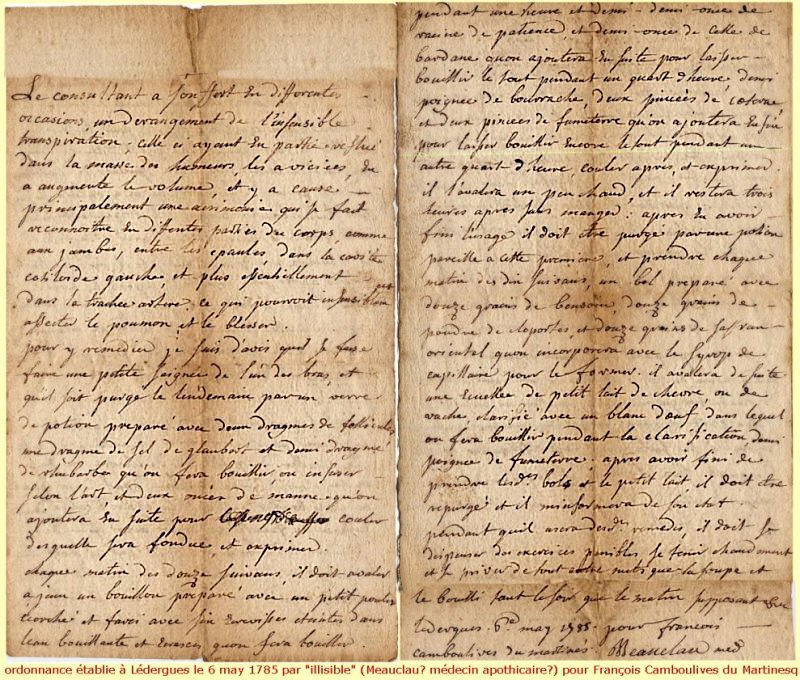 Le consultant a souffert en differentes
occasions un derangement de l'insensible
transpiration; celle ci ayant en partie reflué
dans la masse des humeurs, les a viciées, en
a augmenté le volume, et y a causé
principalement une acrimonie qui se fait
reconnoitre en differentes parties du corps comme
aux jambes, entre les epaules, dans la
gauche, et plus essentiellement
dans la trachée artere, ce qui pourroit insensiblement
affecter le poumon, et le blesser.
pour y remedier je suis d'avis quil se fasse
faire une petite saignée de l'un des bras, et
qu'il soit purgé le lendemain par un verre
de potion preparé avec deux dragmes de follicules
une dragme de sel de glaubert et demi dragme
de rhubarbe qu'on fera bouillir, ou infuser
selon l'art et deux onces de manne qu'on
ajoutera en suite pour couler
des quelle sera fondue et exprimer.
chaque matin des douze suivans, il doit avaler
a jeun un bouillon preparé avec un petit poulet
écorché et farci avec six ecrevisses eteintes dans
l'eau bouillante et quon fera bouillir
pendant une heure et demi demi once de
racine de patience, et demi once de celle de
bardane quon ajoutera en suite pour laisser
bouillir le tout pendant un quart d'heure, demi
poignee de bourrache, deux pincées de
et deux pincées de fumeterre qu'on ajoutera en suite
pour laisser bouillir encore le tout pendant un
autre quart d'heure, couler apres, et exprimer.
il l'avalera un peu chaud, et il restera trois
heures apres sans manger: apres en avoir
fini l'usage il doit etre purgé par une potion
pareille a cette premiere, et prendre chaque
matin des dix suivans, un bol preparé avec
douze grains de benjoin, douze grains de
poudre de cloportes, et douze grains de safran
oriental quon incorporera avec le syrop de
capillaire pour le former. il avalera de suite
une ecuellee de petit lait de chevre, ou de
vache, clarifié avec un blanc d'oeuf dans lequel
on fera bouillir pendant la clarification demi
poignee de fumeterre. apres avoir fini de
prendre lesd. bols et le petit lait, il doit etre
repurgé et il minformera de son etat
pendant quil usera desd. remedes, il doit se
dispenser des exercices penibles, se tenir chaudement
et se priver de tout autre mets que la soupe et
le bouilli tant le soir que le matin
ledergues. 6e may 1785. pour francois
camboulives du martines. Meauclau med
ordonnance établie à Lédergues le 6 may 1785 par "illisible" (Meauclau? médecin apothicaire?) pour François Camboulives du Martinesq